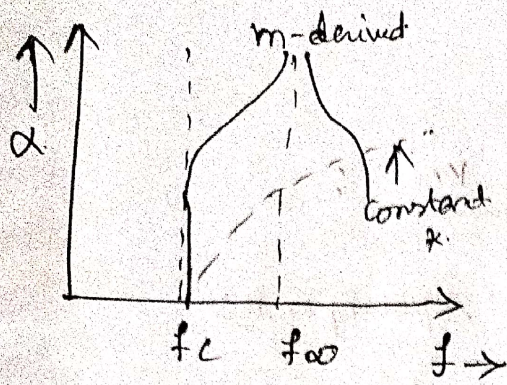 m-derived
α
constant
k.
fc
f∞
f